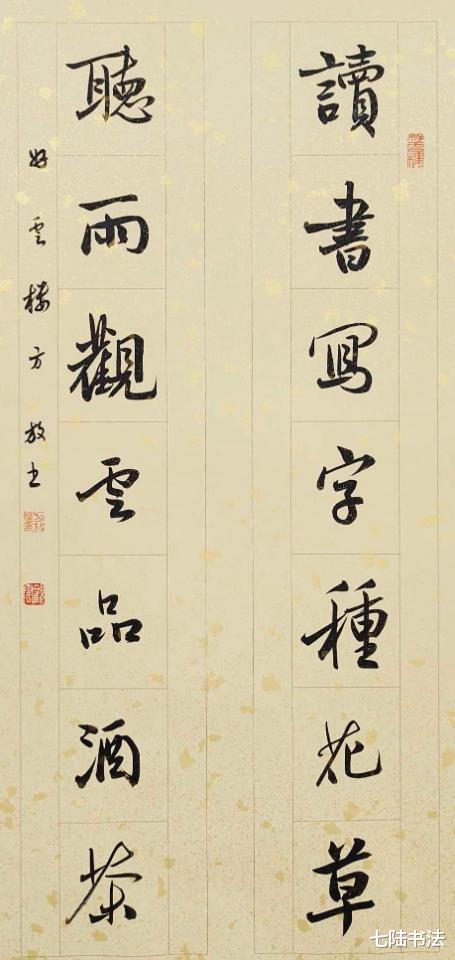 讀書寫字種花草
聽雨觀雲品酒茶
好雲樓方放書
七陆书法